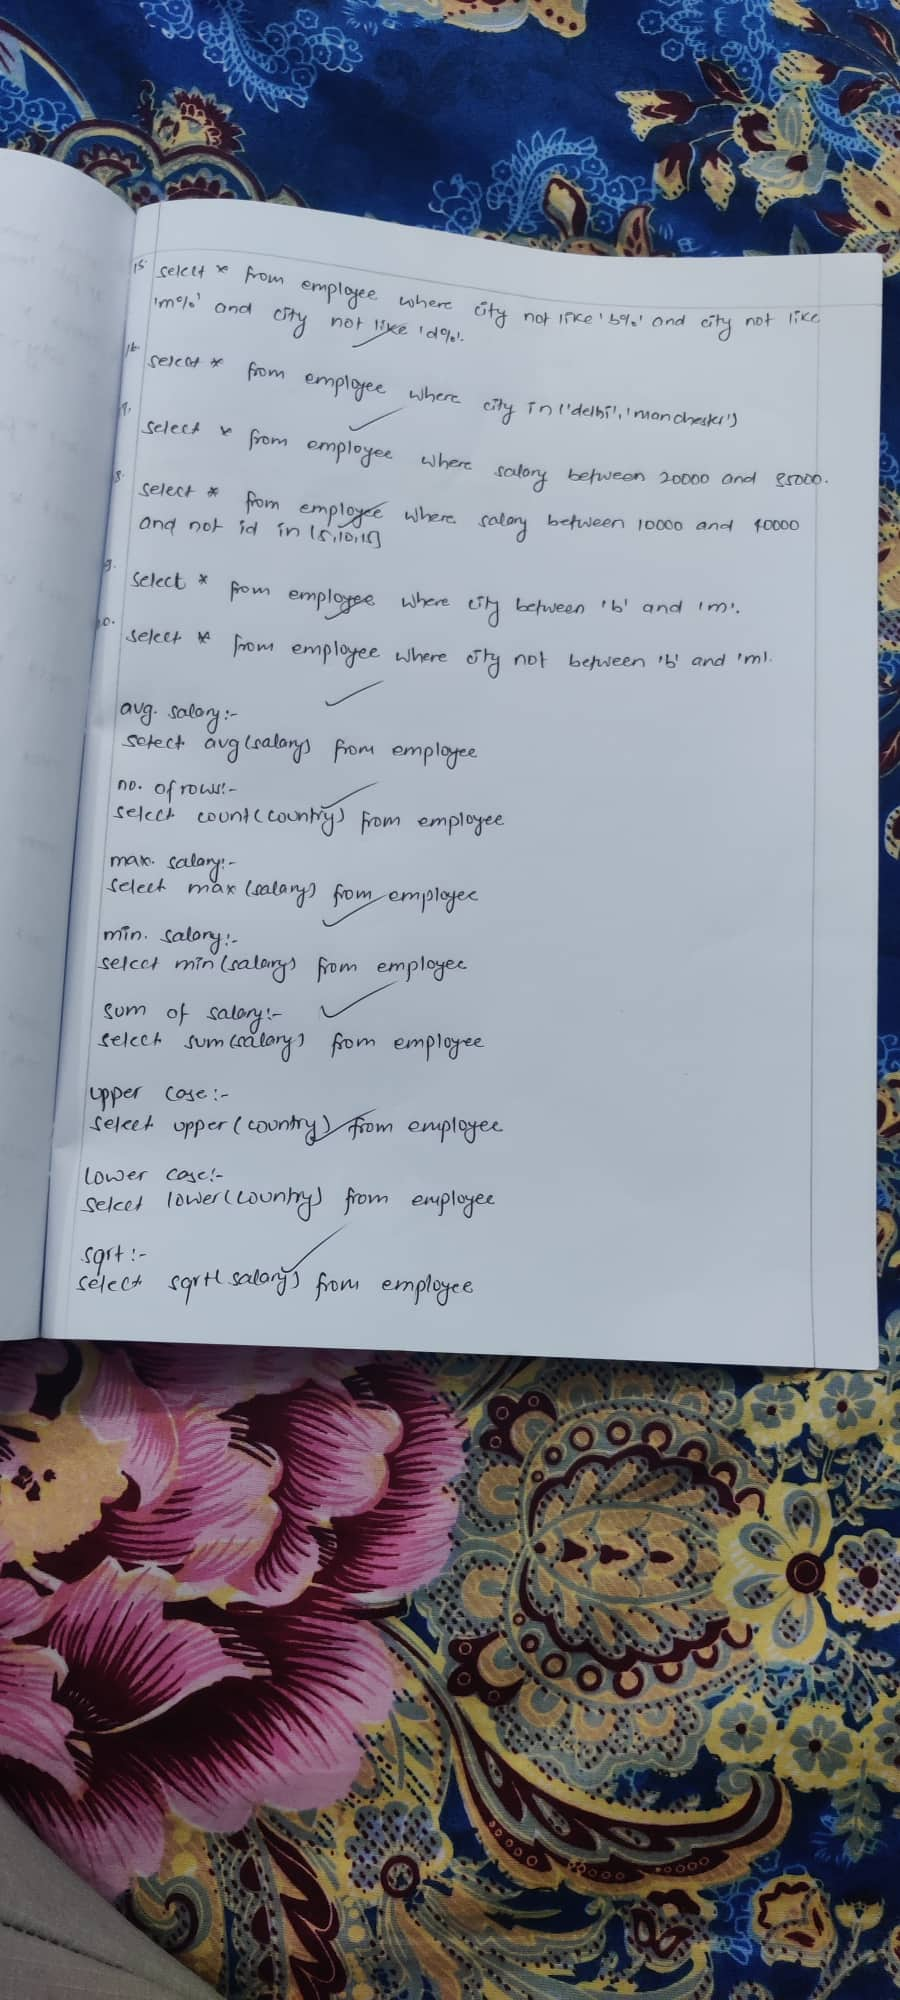 15. select * from employee where city not like 'b%' and city not like
'm%' and city not like 'd%'.
16. select * from employee where city in ('delhi', 'manchester')
7. select * from employee where salary between 20000 and 85000.
8. select * from employee where salary between 10000 and 40000
and not id in (5,10,15)
9. select * from employee where city between 'b' and 'm'.
0. select * from employee where city not between 'b' and 'm'.
avg. salary:-
select avg(salary) from employee
no. of rows:-
select count(country) from employee
max. salary:-
select max(salary) from employee
min. salary:-
select min(salary) from employee
sum of salary:-
select sum(salary) from employee
upper case:-
select upper(country) from employee
lower case:-
select lower(country) from employee
sqrt:-
select sqrt(salary) from employee